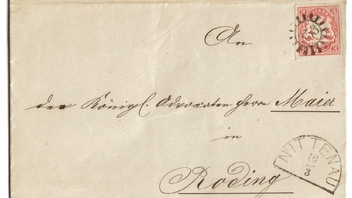 An
den Königl. Advocaten Herrn Maier
in
Roding
NITTENAU
16
3